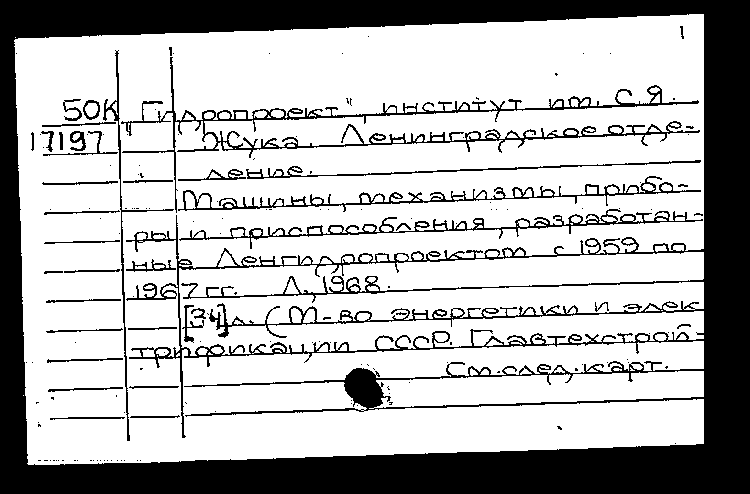 1
50К "Гидропроект", институт им. С.Я.
17197 Жука. Ленинградское отде-
ление.
Машины, механизмы, прибо-
ры и приспособления, разработан-
ные Ленгидропроектом с 1959 по
1967 гг. Л., 1968.
[34]л. (М-во энергетики и элек
трификации СССР. Главтехстрой-
См. след. карт.